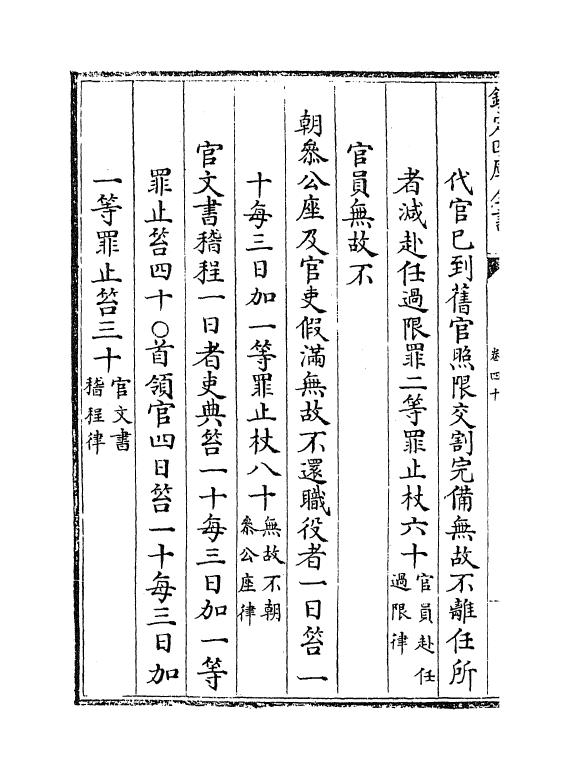 欽定四庫全書
卷四十
代官已到舊官照限交割完備無故不離任所
者減赴任過限罪二等罪止杖六十官員赴任過限律
官員無故不
朝叅公座及官吏假滿無故不還職役者一日笞一
十每三日加一等罪止杖八十無故不朝叅公座律
官文書稽程一日者吏典笞一十每三日加一等
罪止笞四十○首領官四日笞一十每三日加
一等罪止笞三十官文書稽程律